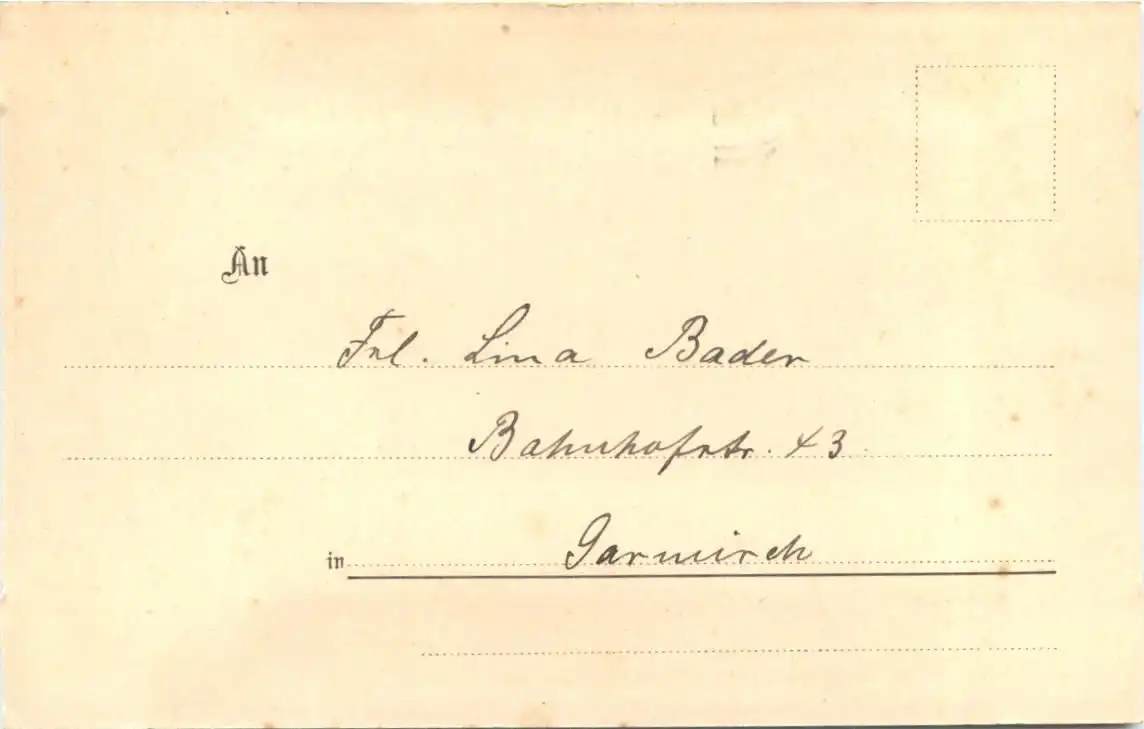 An
Frl. Lina Bader
Bahnhofstr. 43
in Garmisch